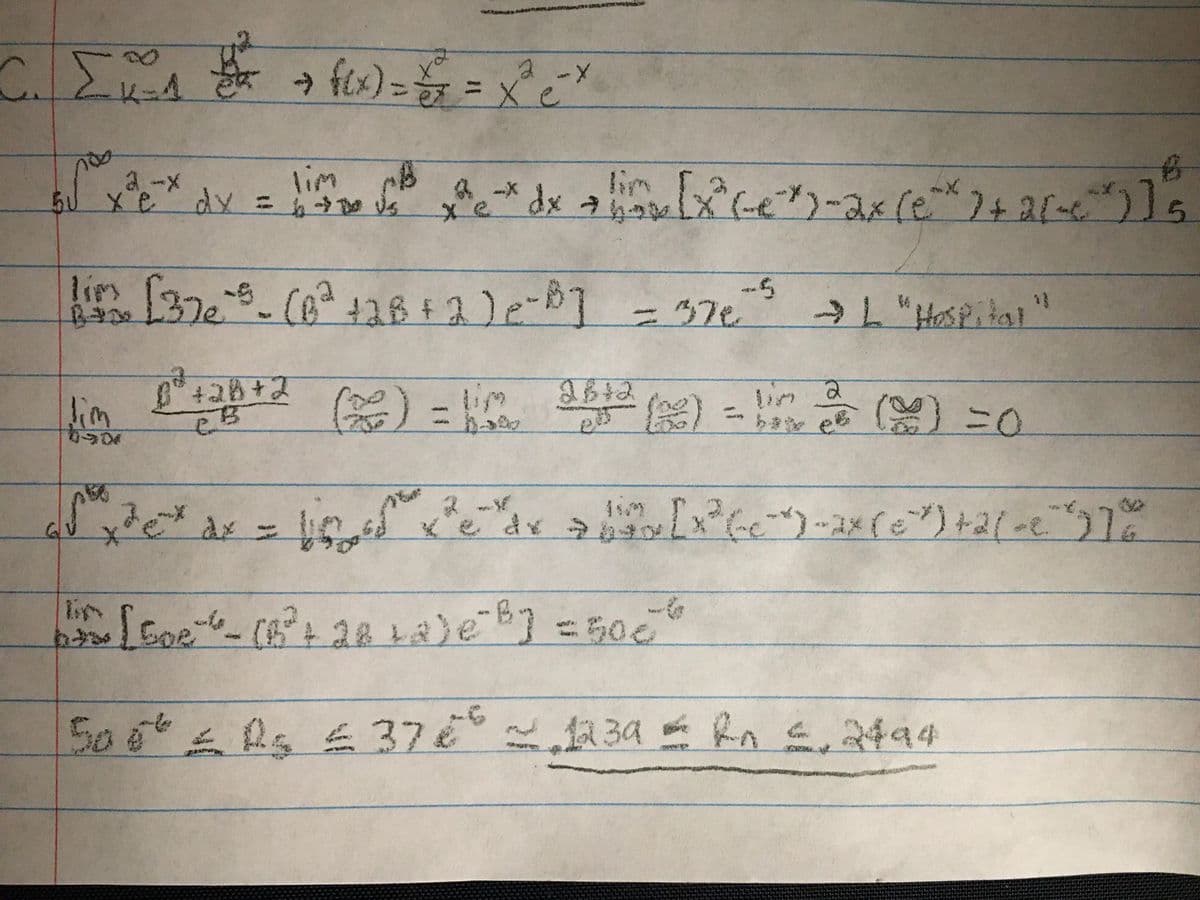 C. ∑_{k=1}^{∞} k²/e^k → f(x) = x²/e^x = x² e^{-x}
₅∫^∞ x² e^{-x} dx = lim_{b→∞} ∫₅^B x² e^{-x} dx → lim_{b→∞} [x²(-e^{-x}) - 2x(e^{-x}) + 2(-e^{-x})]₅^B
lim_{B→∞} [37e^{-5} - (B² + 2B + 2)e^{-B}] = 37e^{-5} → L "Hospital"
lim_{b→∞} (B² + 2B + 2)/e^B (∞/∞) = lim_{b→∞} (2B+2)/e^B (∞/∞) = lim_{b→∞} 2/e^B (∞/∞) = 0
₆∫^∞ x² e^{-x} dx = lim_{b→∞} ₆∫^∞ x² e^{-x} dx → lim_{b→∞} [x²(-e^{-x}) - 2x(e^{-x}) + 2(-e^{-x})]₆^∞
lim_{b→∞} [50e^{-6} - (B² + 2B + 2)e^{-B}] = 50e^{-6}
50 e^{-6} ≤ R₅ ≤ 37 e^{-6} ≈ .1239 ≤ Rn ≤ .2494